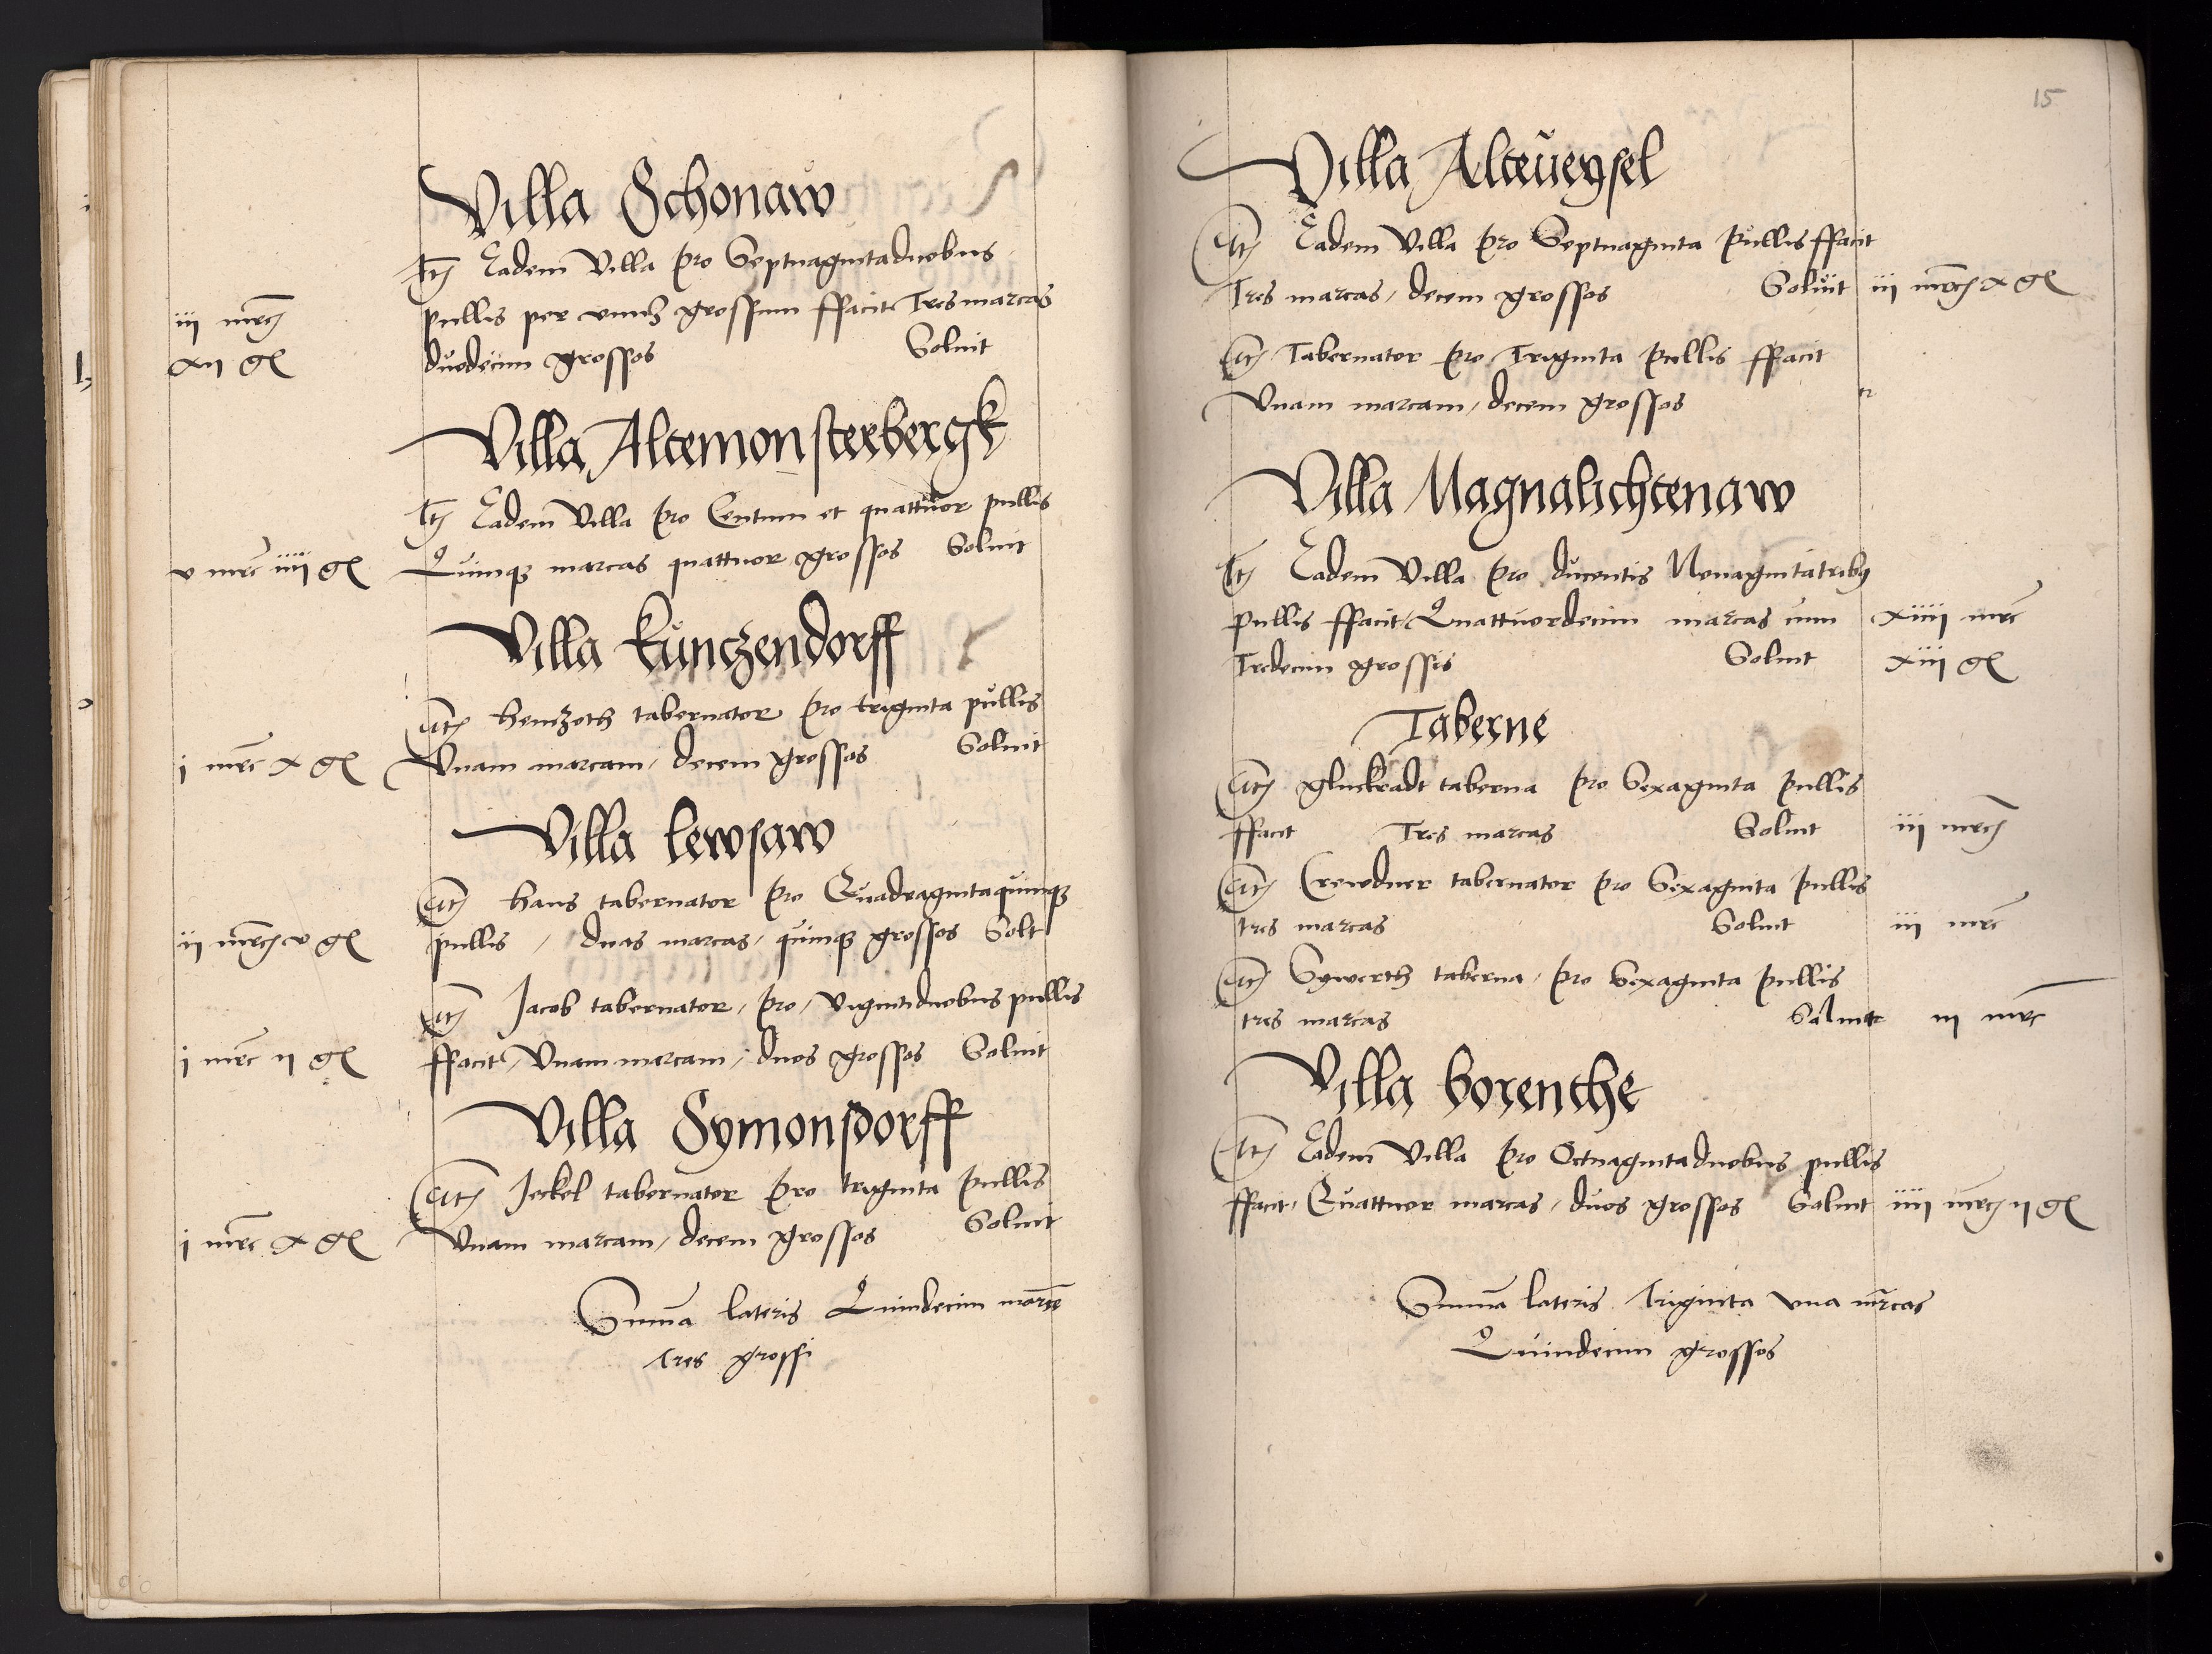 Villa Schonaw
Itm Eadem Villa pro Septuagintaduobus
iij mrc pullis per vnum grossum ffacit Tres marcas
xij gl duodecim grossos Soluit
Villa Altemonsterbergk
Itm Eadem Villa pro Centum et quattuor pullis
v mrc iiij gl Quinque marcas quattuor grossos Soluit
Villa kunczendorff
Itm henczoth tabernator pro triginta pullis
j mrc x gl Vnam marcam, decem grossos Soluit
Villa lewsaw
Itm hans tabernator pro Quadragintaquinque
ij mrc v gl pullis, duas marcas, quinque grossos Solt
Itm Jacob tabernator, pro, vigintiduobus pullis
j mrc ij gl ffacit, Vnam marcam, duos grossos Soluit
Villa Symonsdorff
Itm Jeckel tabernator pro triginta pullis
j mrc x gl Vnam marcam, decem grossos Soluit
Summa lateris Quindecim marce
Tres grossi
15
Villa Alteweysel
Itm Eadem Villa pro Septuaginta pullis ffacit
Tres marcas, decem grossos Soluit iij mrc x gl
Itm Tabernator pro Triginta pullis ffacit
Vnam marcam, decem grossos
Villa Magnalichtenaw
Itm Eadem Villa pro ducentis Nonagintatribus
pullis ffacit, Quattuordecim marcas cum xiiij mrc
Tredecim grossis Soluit xiij gl
Taberne
Itm gluckradt taberna pro Sexaginta pullis
ffacit Tres marcas Soluit iij mrc
Itm Crewdner tabernator pro Sexaginta pullis
tres marcas Soluit iij mrc
Itm Sywerth taberna, pro Sexaginta pullis
tres marcas Soluit iij mrc
Villa borenthe
Itm Eadem Villa pro Octuagintaduobus pullis
ffacit, Quattuor marcas, duos grossos Soluit iiij mrc ij gl
Summa lateris Triginta vna mrcas
Quindecim grossos